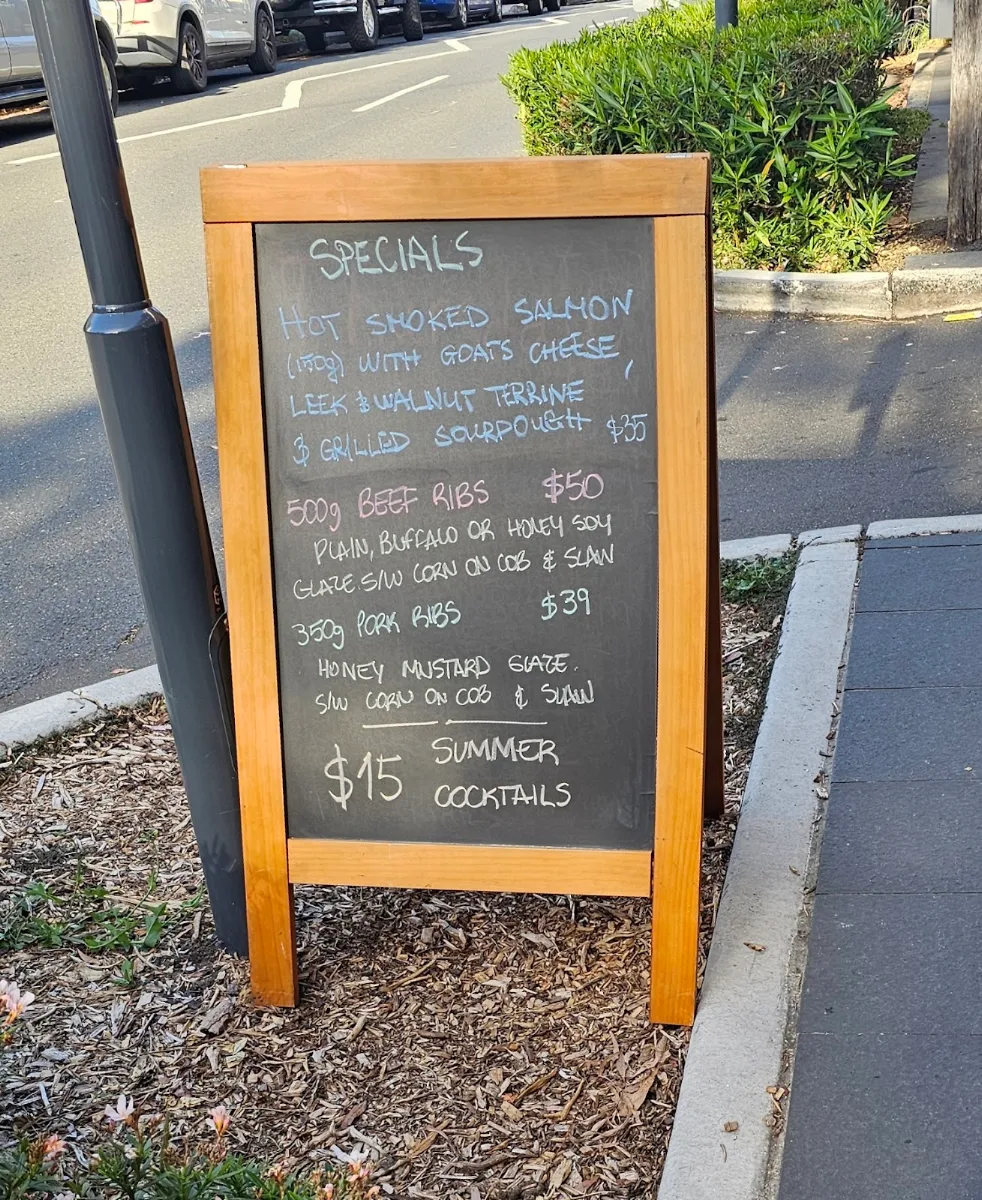 SPECIALS
HOT SMOKED SALMON
(150g) WITH GOATS CHEESE,
LEEK & WALNUT TERRINE
& GRILLED SOURDOUGH $35
500g BEEF RIBS $50
PLAIN, BUFFALO OR HONEY SOY
GLAZE. S/W CORN ON COB & SLAW
350g PORK RIBS $39
HONEY MUSTARD GLAZE.
S/W CORN ON COB & SLAW
$15 SUMMER
COCKTAILS